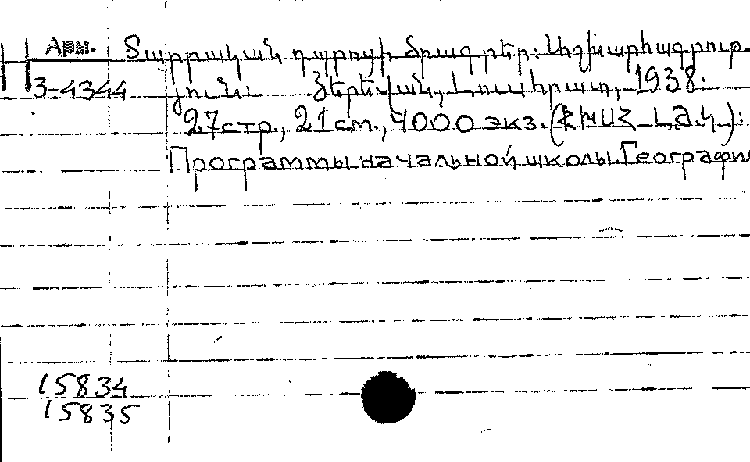 Арм. Տարրական դպրոցի ծրագրեր: Աշխարհագրութ-
3-4344 յուն: Յերեվան, Լուսհրատ, 1938:
27стр., 21см., 4000 экз. (ՀԽՍՀ ԼԺԿ):
Программы начальной школы. География
15834
15835